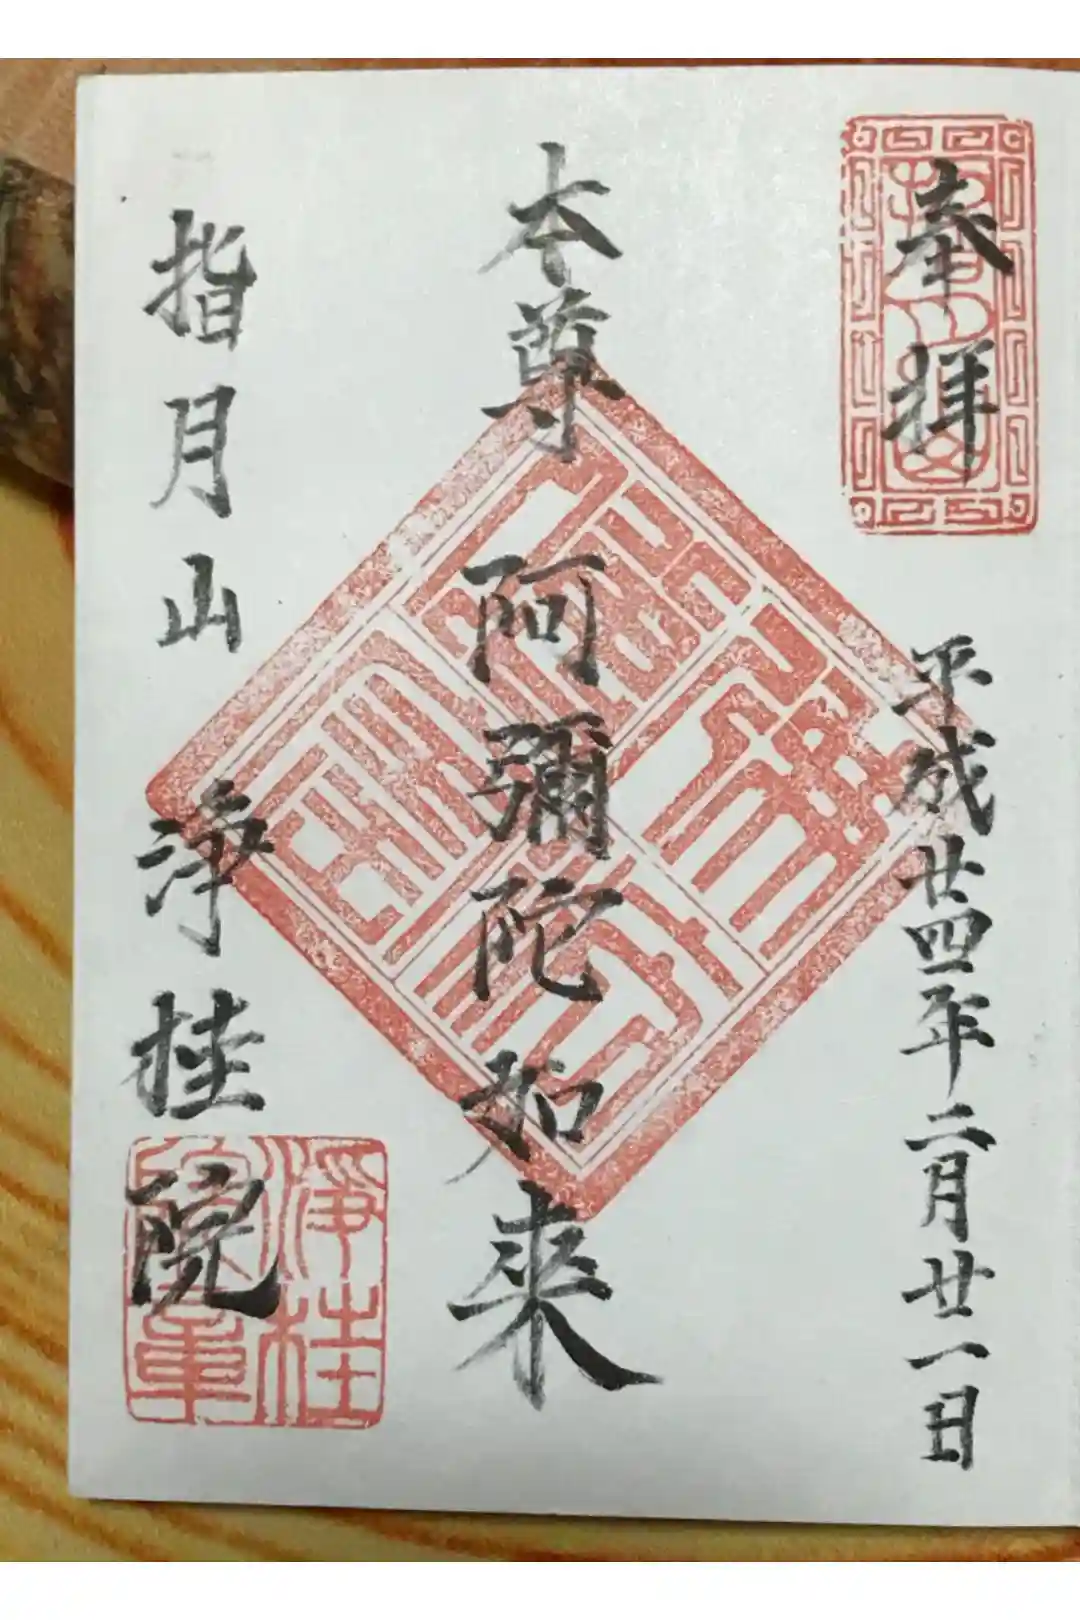 奉拝
平成廿四年二月廿一日
本尊 阿彌陀如来
指月山 浄桂院
指月山
浄桂院章